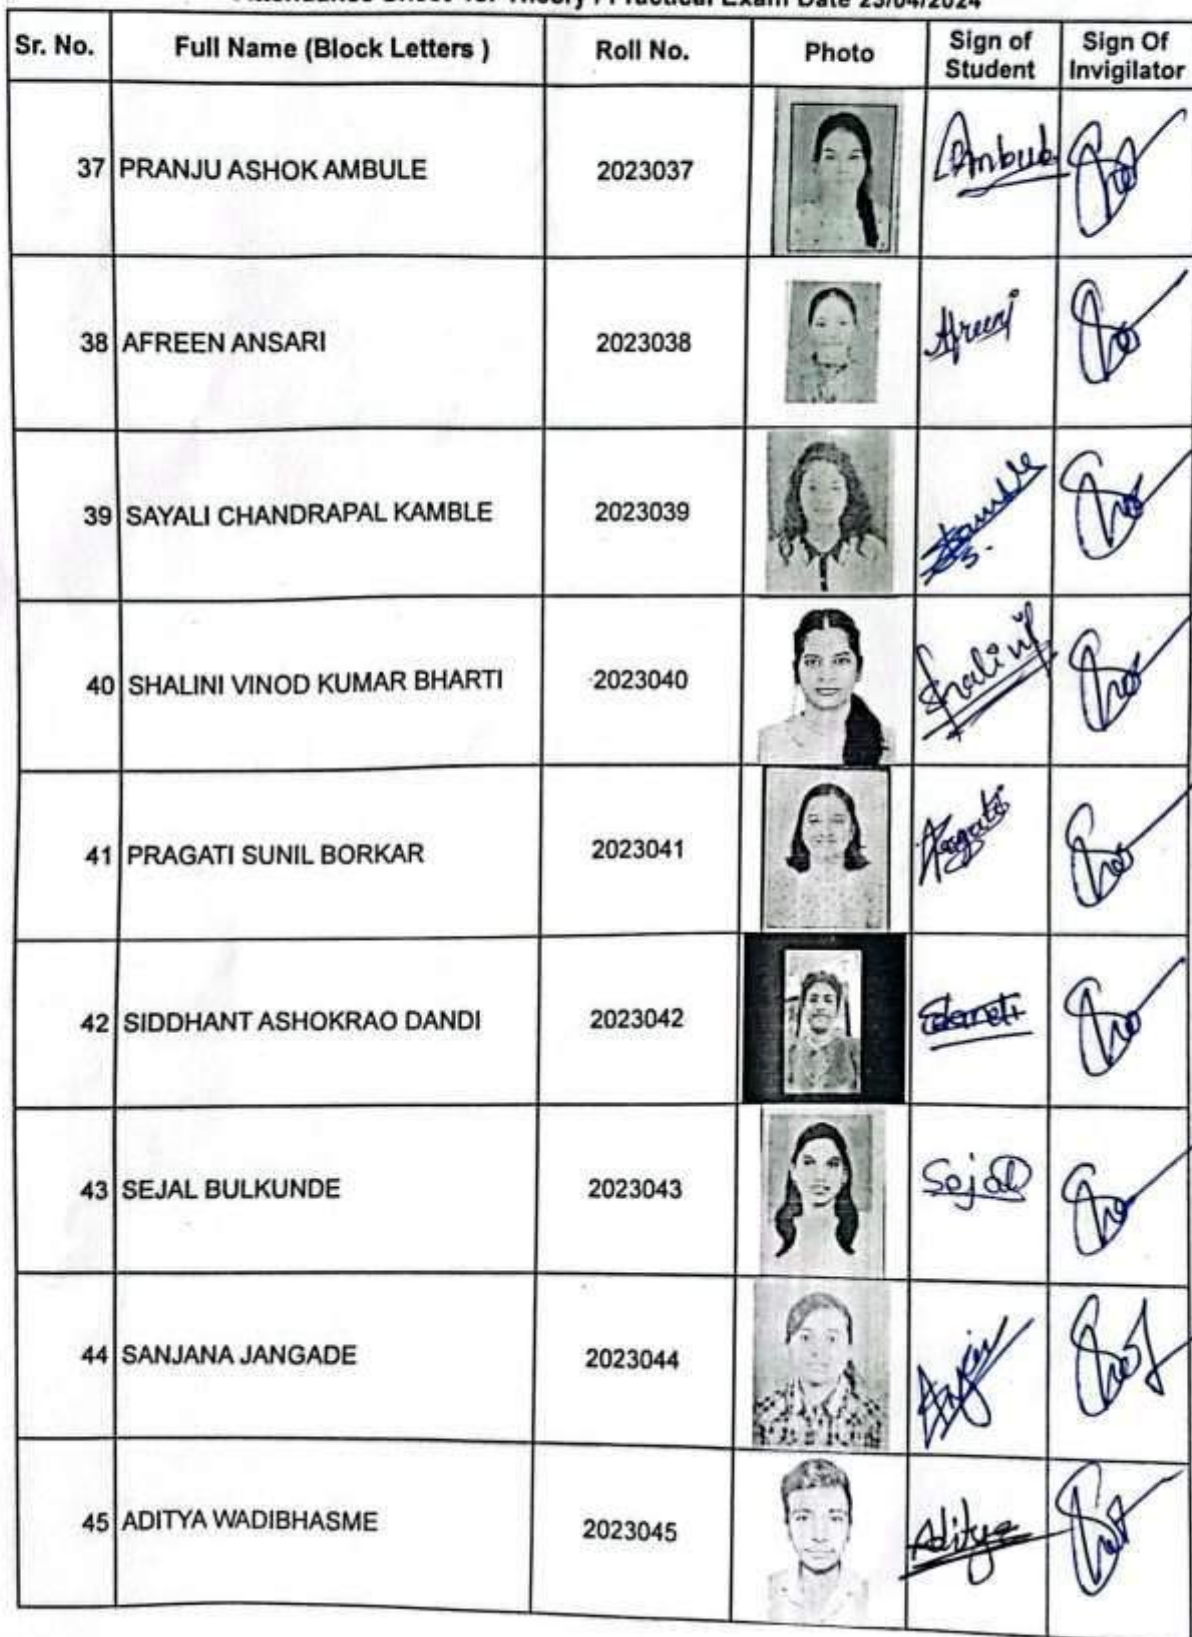 Attendance Sheet for Theory / Practical Exam Date 23/04/2024
Sr. No. Full Name (Block Letters ) Roll No. Photo Sign of Student Sign Of Invigilator
37 PRANJU ASHOK AMBULE 2023037 Ambule
38 AFREEN ANSARI 2023038 Afreen
39 SAYALI CHANDRAPAL KAMBLE 2023039 Kamble
40 SHALINI VINOD KUMAR BHARTI 2023040 Shalini
41 PRAGATI SUNIL BORKAR 2023041 Pragati
42 SIDDHANT ASHOKRAO DANDI 2023042
43 SEJAL BULKUNDE 2023043 Sejal
44 SANJANA JANGADE 2023044
45 ADITYA WADIBHASME 2023045 Aditya